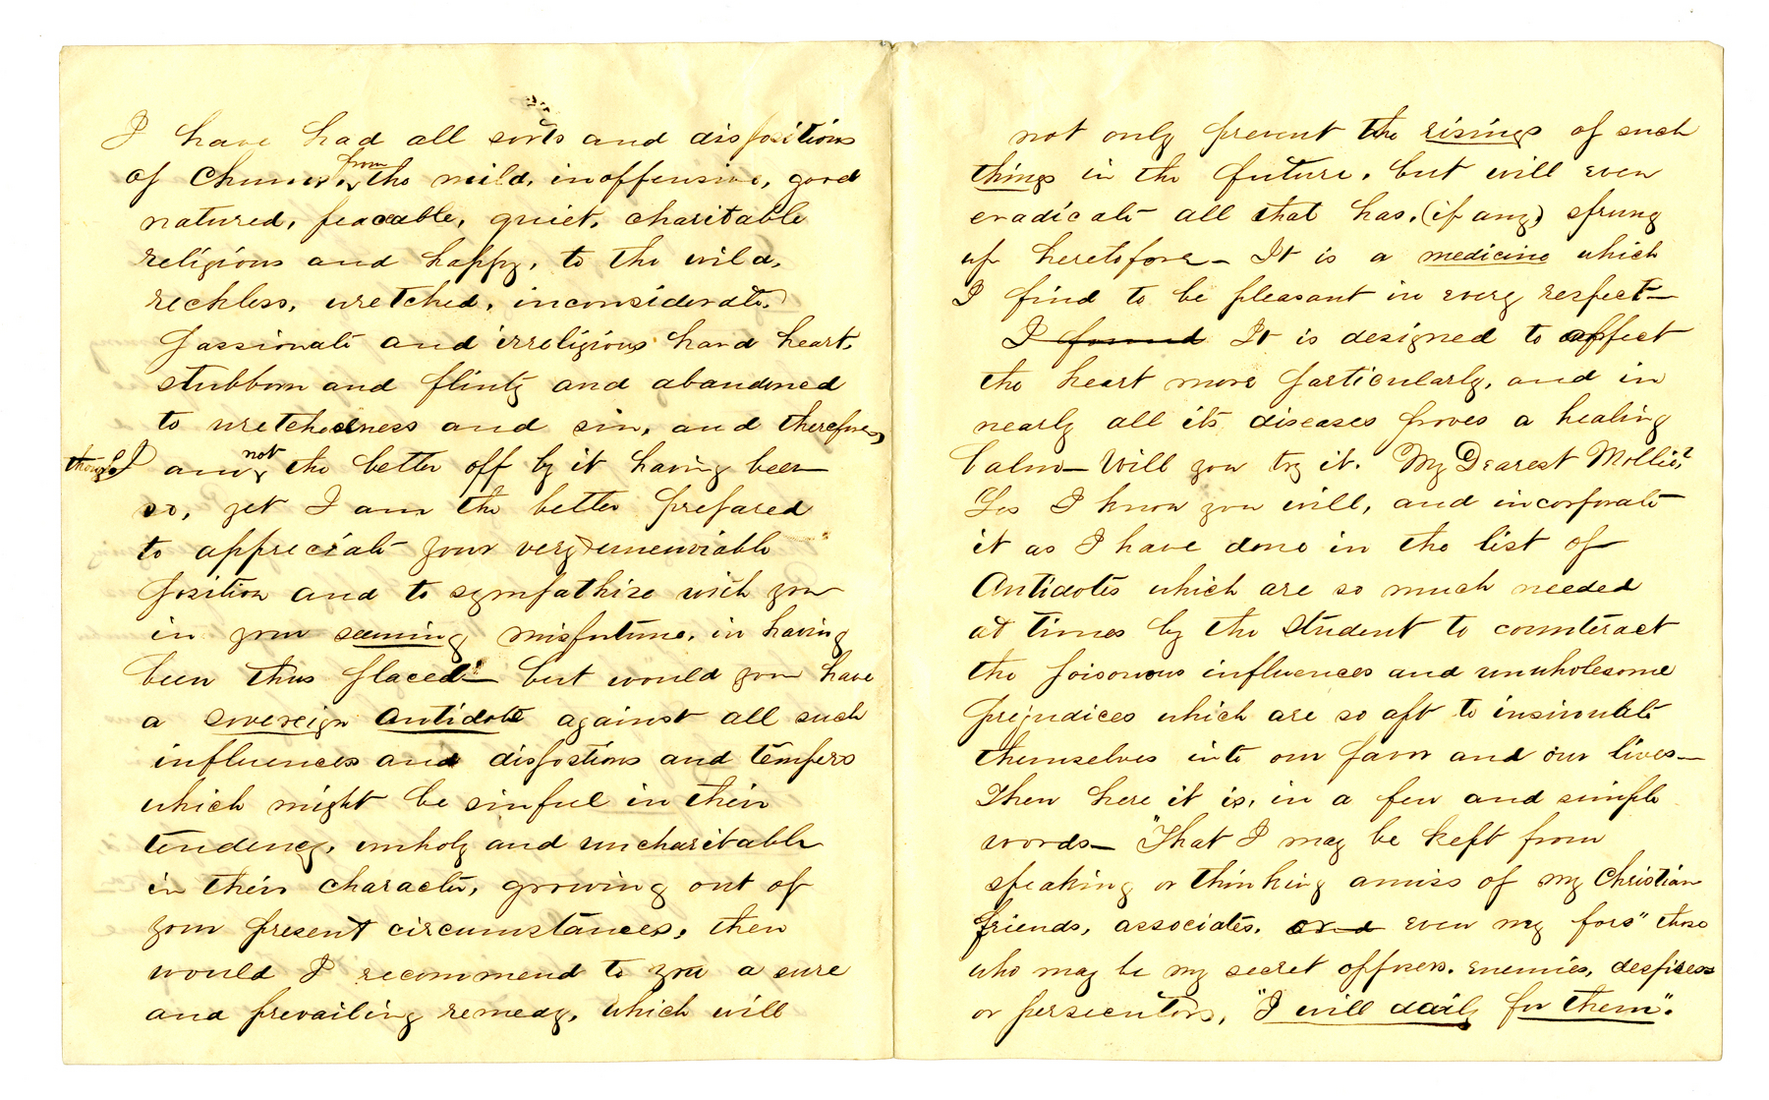 I have had all sorts and dispositions
of Chums, from the mild, inoffensive, good
natured, peaceable, quiet, charitable
religious and happy, to the wild,
reckless, wretched, inconsiderate,
passionate and irreligious hard heart,
stubborn and flinty and abandoned
to wretchedness and sin, and therefore,
though I am not the better off by it having been
so, yet I am the better prepared
to appreciate your very unenviable
position and to sympathise with you
in your seeming misfortune, in having
been thus placed— but would you have
a sovereign antidote against all such
influences and dispostions and tempers
which might be sinful in their
tendency, unholy and uncharitable
in their character, growing out of
your present circumstances, then
would I recommend to you a sure
and prevailing remedy, which will
not only prevent the risings of such
things in the future, but will even
eradicate all that has, (if any) sprung
up heretofore— It is a medicine which
I find to be pleasant in every respect—
I found It is designed to affect
the heart more particularly, and in
nearly all its diseases proves a healing
balm— Will you try it. My Dearest Mollie?
Yes I know you will, and incorporate
it as I have done in the list of
Antidotes which are so much needed
at times by the student to counteract
the poisonous influences and unwholesome
prejudices which are so oft to insinuate
themselves into our favor and our lives—
Then here it is, in a few and simple
words— "That I may be kept from
speaking or thinking amiss of my Christian
friends, associates, and even my foes" those
who may be my secret opposers, enemies, despisers
or persecutors, "I will daily for them".